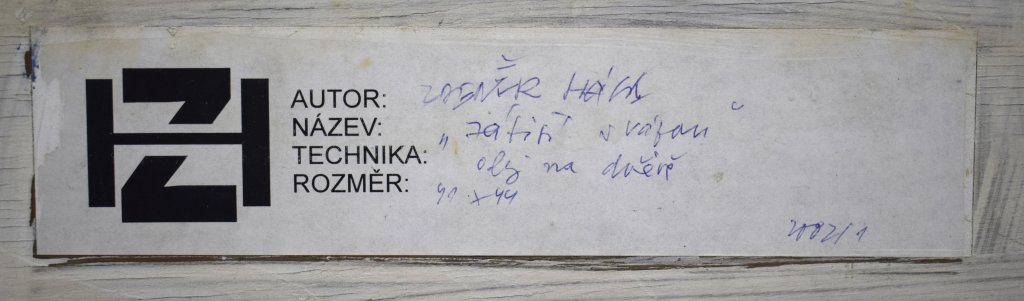 ZH
AUTOR: ZDENĚK HÁJEK
NÁZEV: „Zátiší s vázou“
TECHNIKA: olej na dřevě
ROZMĚR: 41 x 44
2002/1